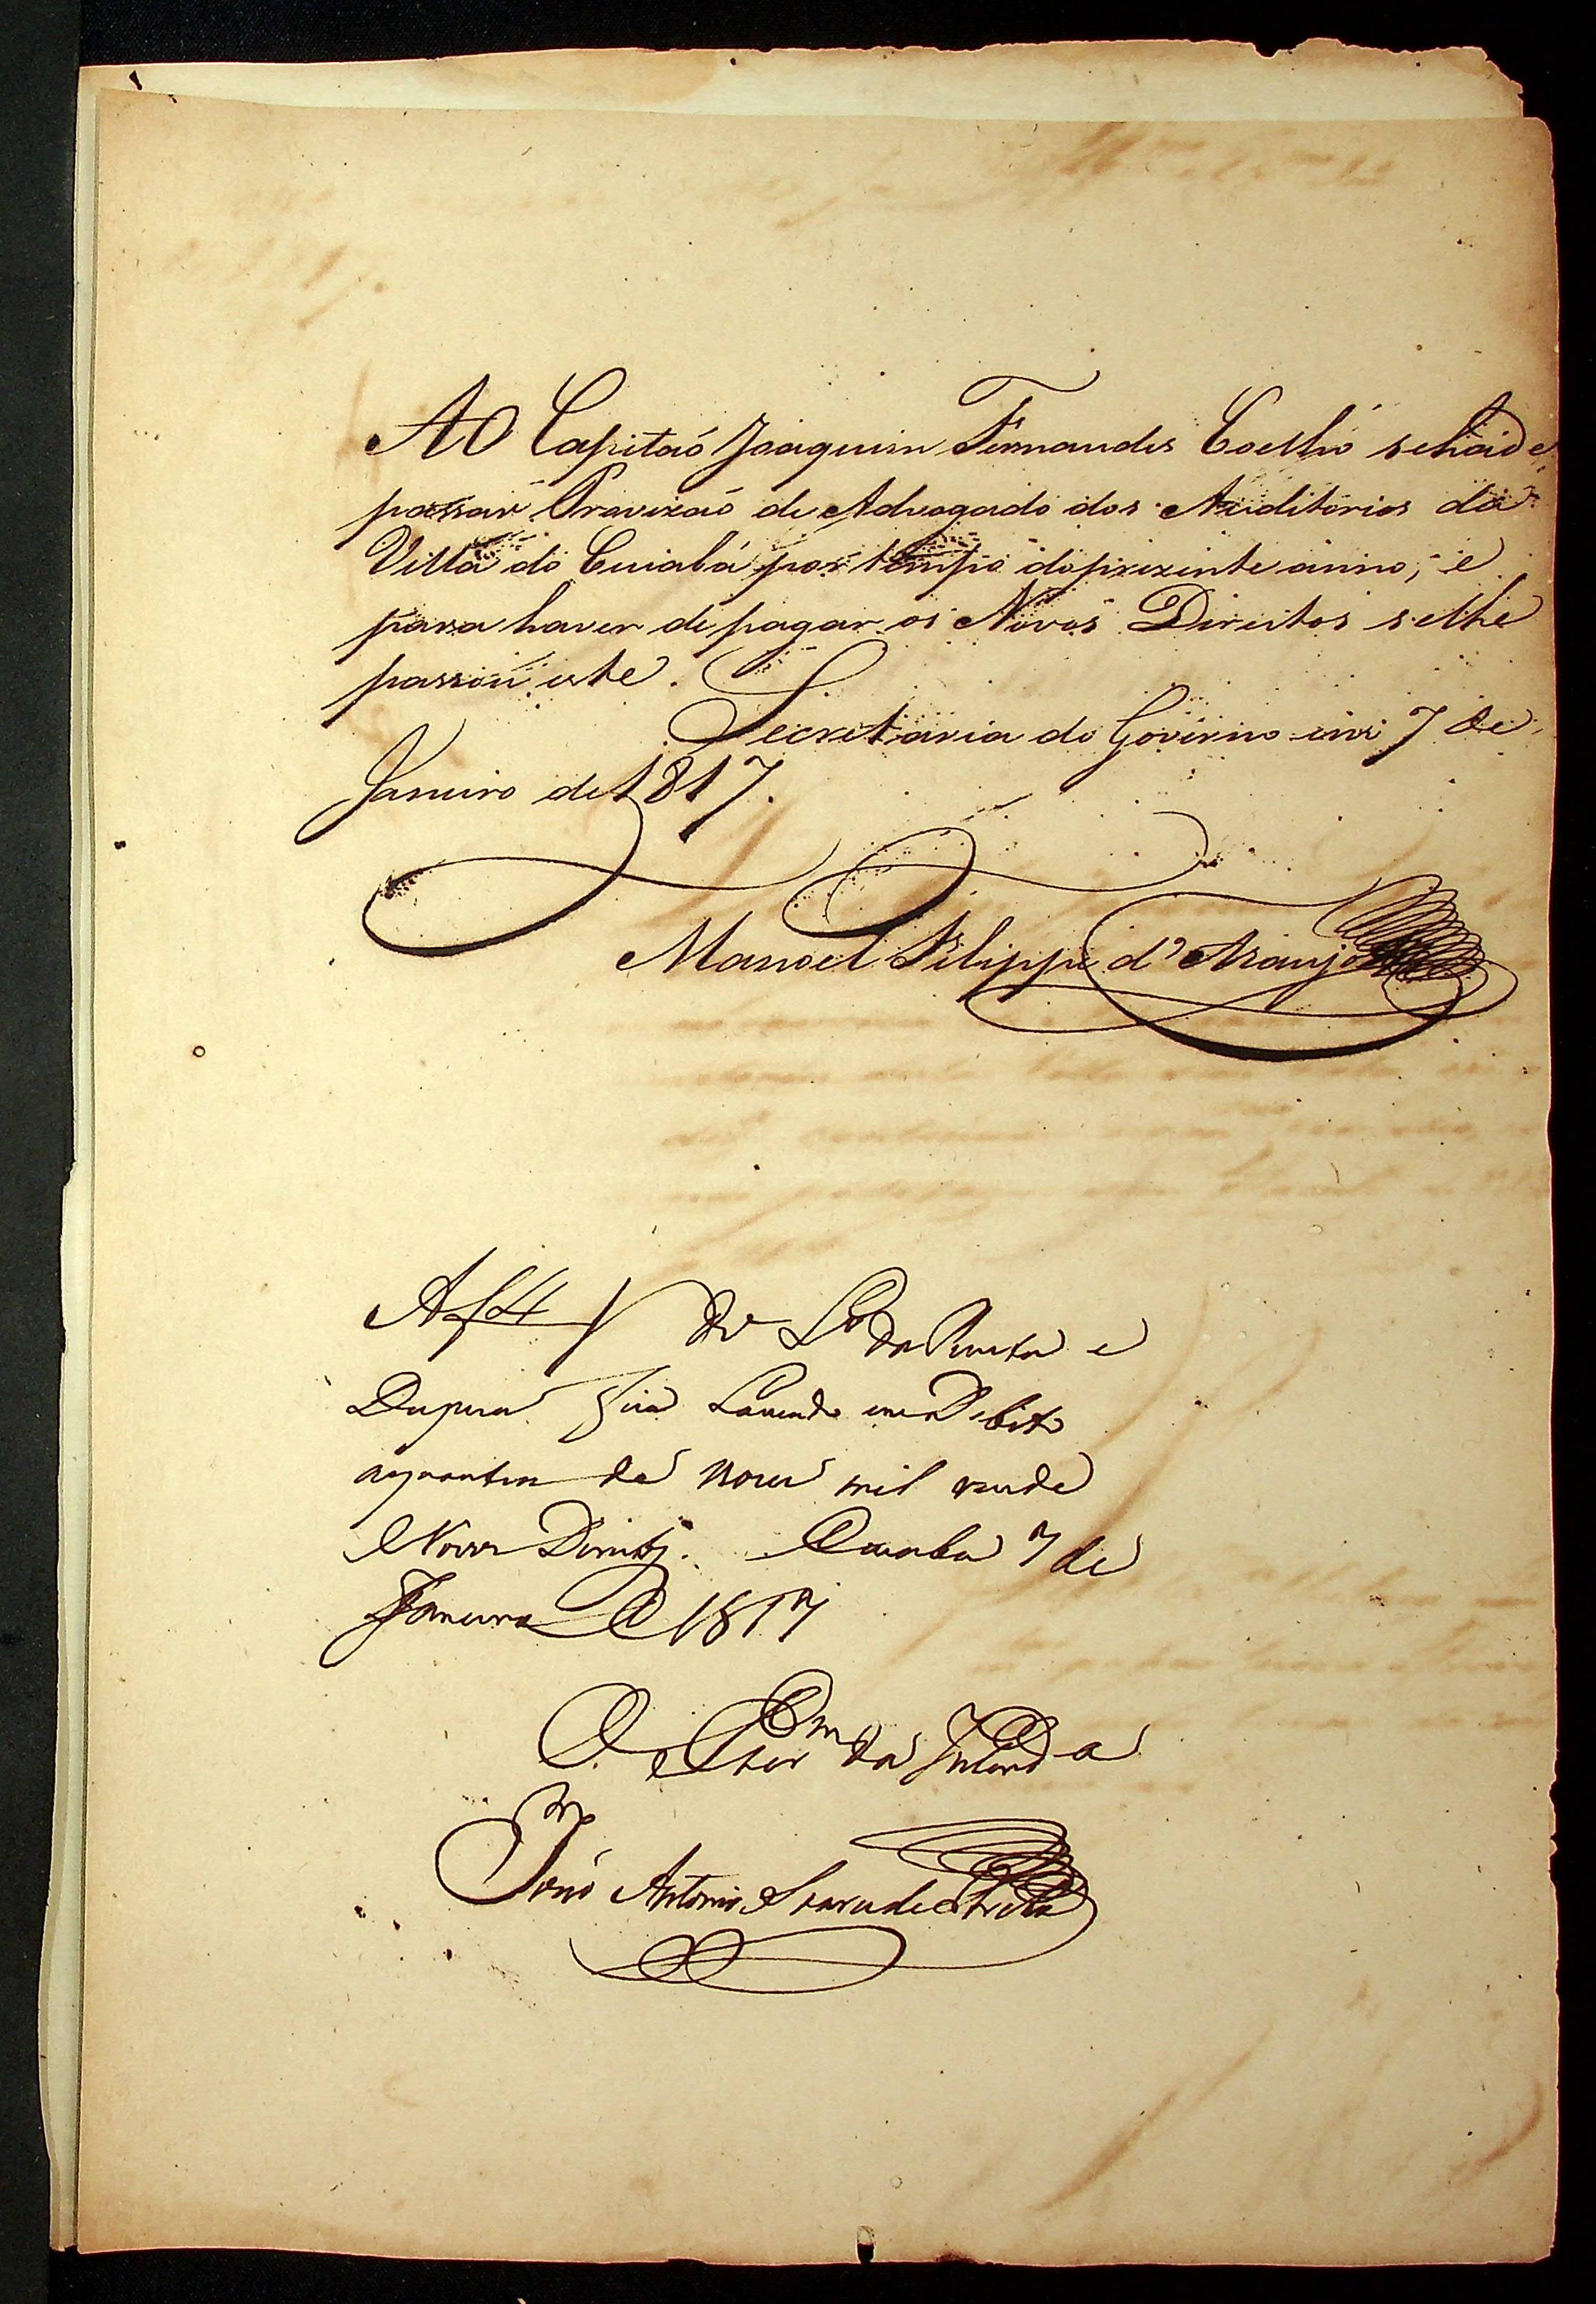 AO Capitaõ Joaquim Fernandes Coelho sehade
passar Provizaõ de Advogado dos Auditorios da
Villa do Cuiabá por tempo doprezente anno, e
para haver de pagar os Novos Direitos selhe
passou este.
Secretaria do Governo em 7 de
Janeiro de 1817.
Manoel Filippe d'Araujo
Af 4 V do L.º da Receita e
Despeza fica Lancado em Debito
aquantia de nove mil reis de
Novos Direitos. Cuiaba 7 de
Janeiro de 1817
O Escr.m da Intend.a
João Antonio